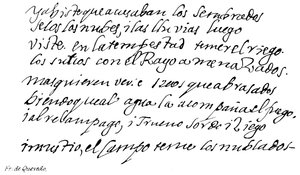 ya biste que acusaban los sembrados
secos las nubes, i las lluvias luego
viste en la tempestad temer el riego
los surcos con el Rayo amenazados.
mas quieren verse secos que abrasados
biendo que al agua la acompaña el fuego
i el relampago, i Trueno sordo i ciego
i mustio, el campo teme los nublados-
Fr. de Quevedo.